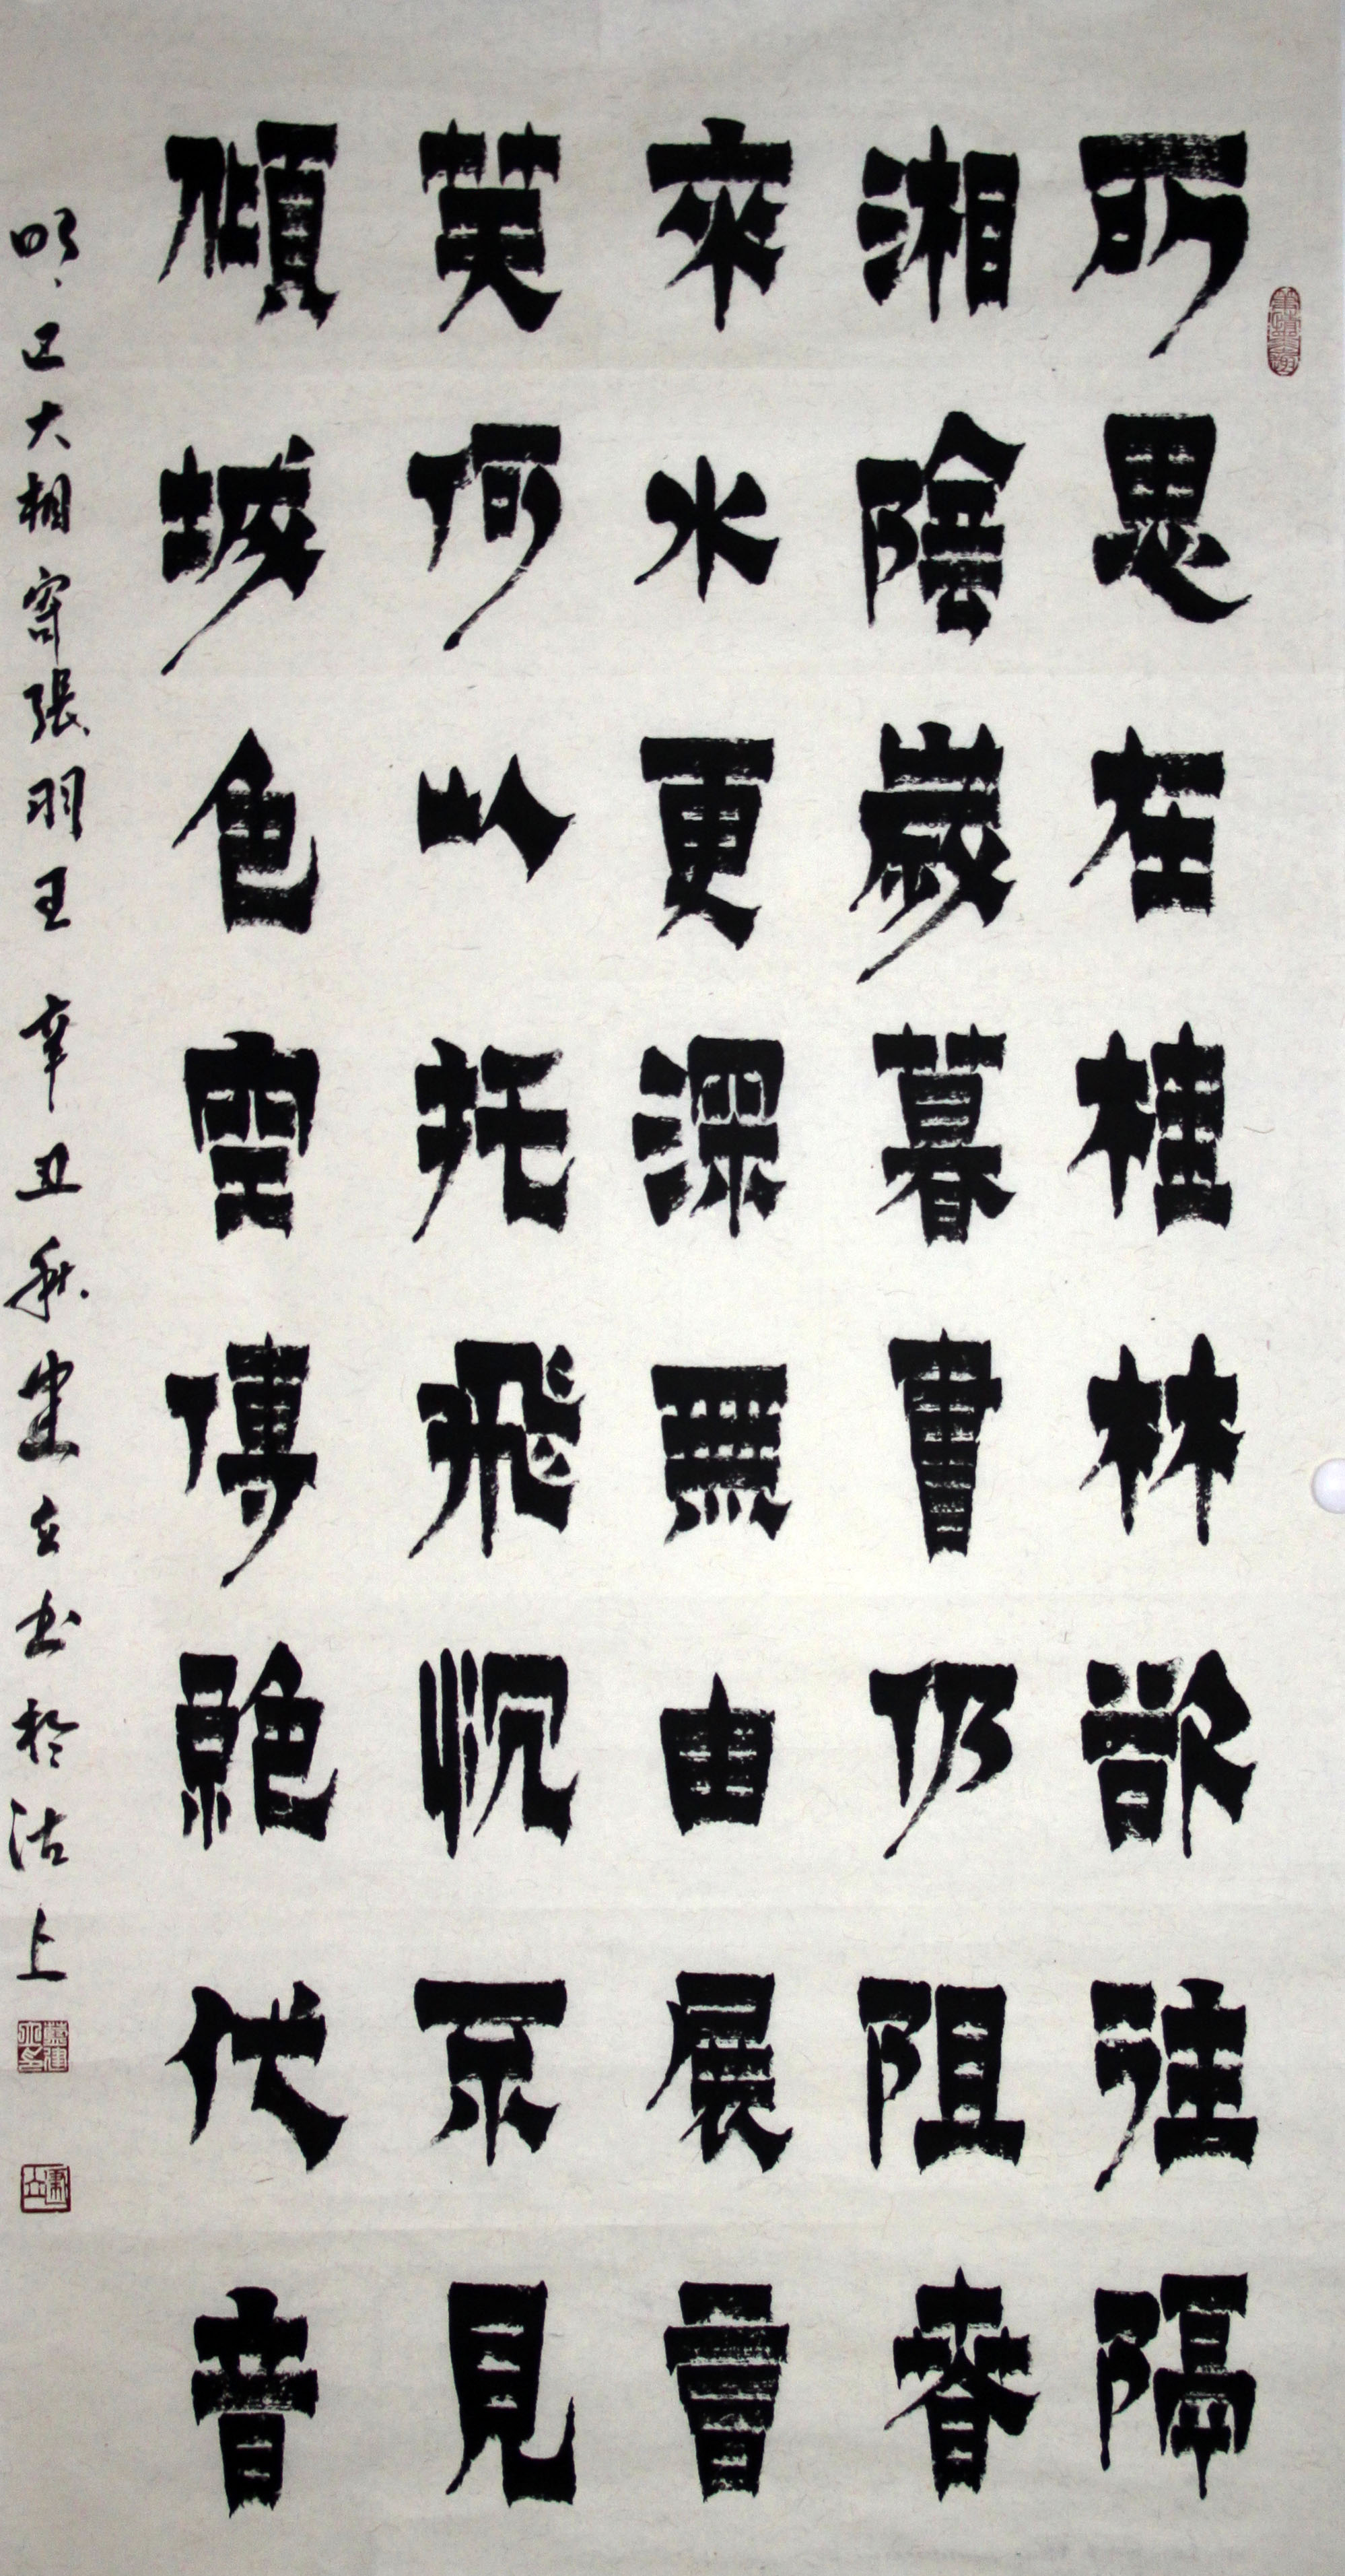 所思在桂林欲往隔
湘陰歲暮書仍阻春
來水更深無由展
英何以托飛沉不見
傾城色空傳絕代音
明区大相寄張羽王 辛丑秋建立书於沽上